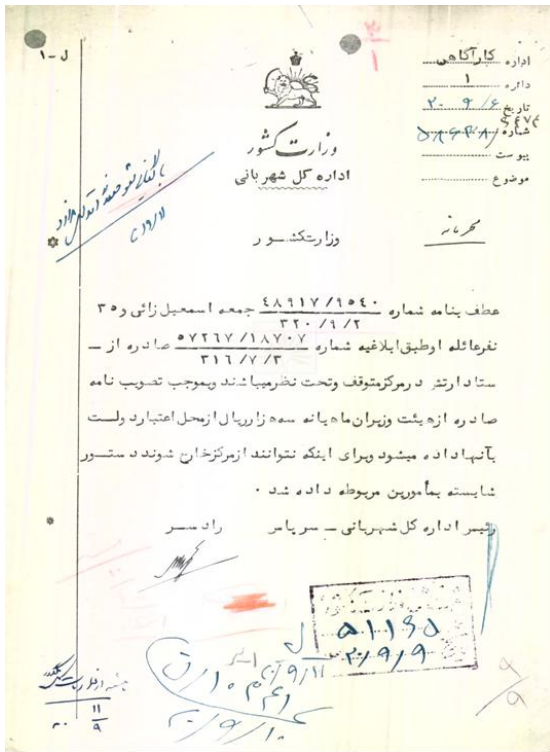 ل-۱
اداره کارآگاهی
دائره ۱
تاریخ ۲۰/۹/۶
شماره
پیوست
موضوع
وزارت کشور
اداره کل شهربانی
محرمانه
وزارتکشور
عطف بنامه شماره ٤٨٩١٧/٩٥٤٠ جمعه اسمعیل زائی و ۳۵
۳۲۰/۹/۲
نفرعائله اوطبق ابلاغیه شماره ٥٧٢٦٧/١٨٧٠٧ صادره از ـ
۳۱٦/۷/۳
ستاد ارتش درمرکزمتوقف وتحت نظرمیباشند وبموجب تصویب نامه
صادره ازهیئت وزیران ماهیانه سه هزارریال ازمحل اعتبارد ولت
بآنهاداده میشود وبرای اینکه نتوانند ازمرکزخارج شوند دستور
شایسته بمأمورین مربوطه داده شد ۰
رئیس اداره کل شهربانی ـ سرپاس رادسر
۵۱۱۶۵
۲۰/۹/۹
۲۰/۹/۱۱
۲۰/۹/۱۰